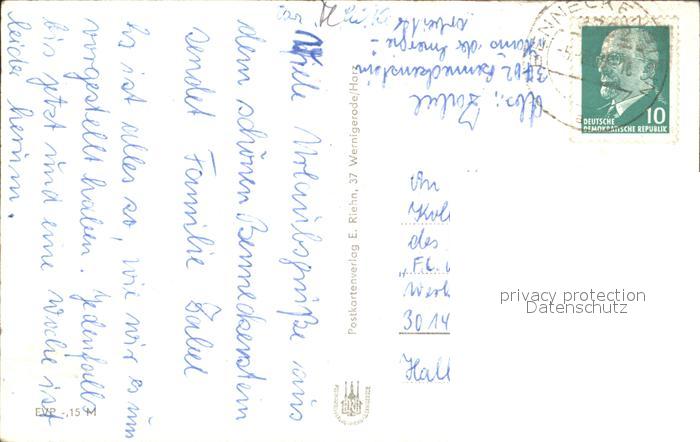 Viele Urlaubsgrüße aus
dem schönen Benneckenstein
sendet Familie Zabel
Es ist alles so, wie wir es uns
vorgestellt haben. Jedenfalls
bis jetzt und eine Woche ist
leider herum.
EVP -,15 M
Postkartenverlag E. Riehn, 37 Wernigerode/Harz
Abs.: Zabel
3702 Benneckenstein
Heim der Energie-
arbeiter
BENNECKEN
DEUTSCHE
DEMOKRATISCHE REPUBLIK
10
An
Koll
des
Werk
3014
Hall
privacy protection
Datenschutz